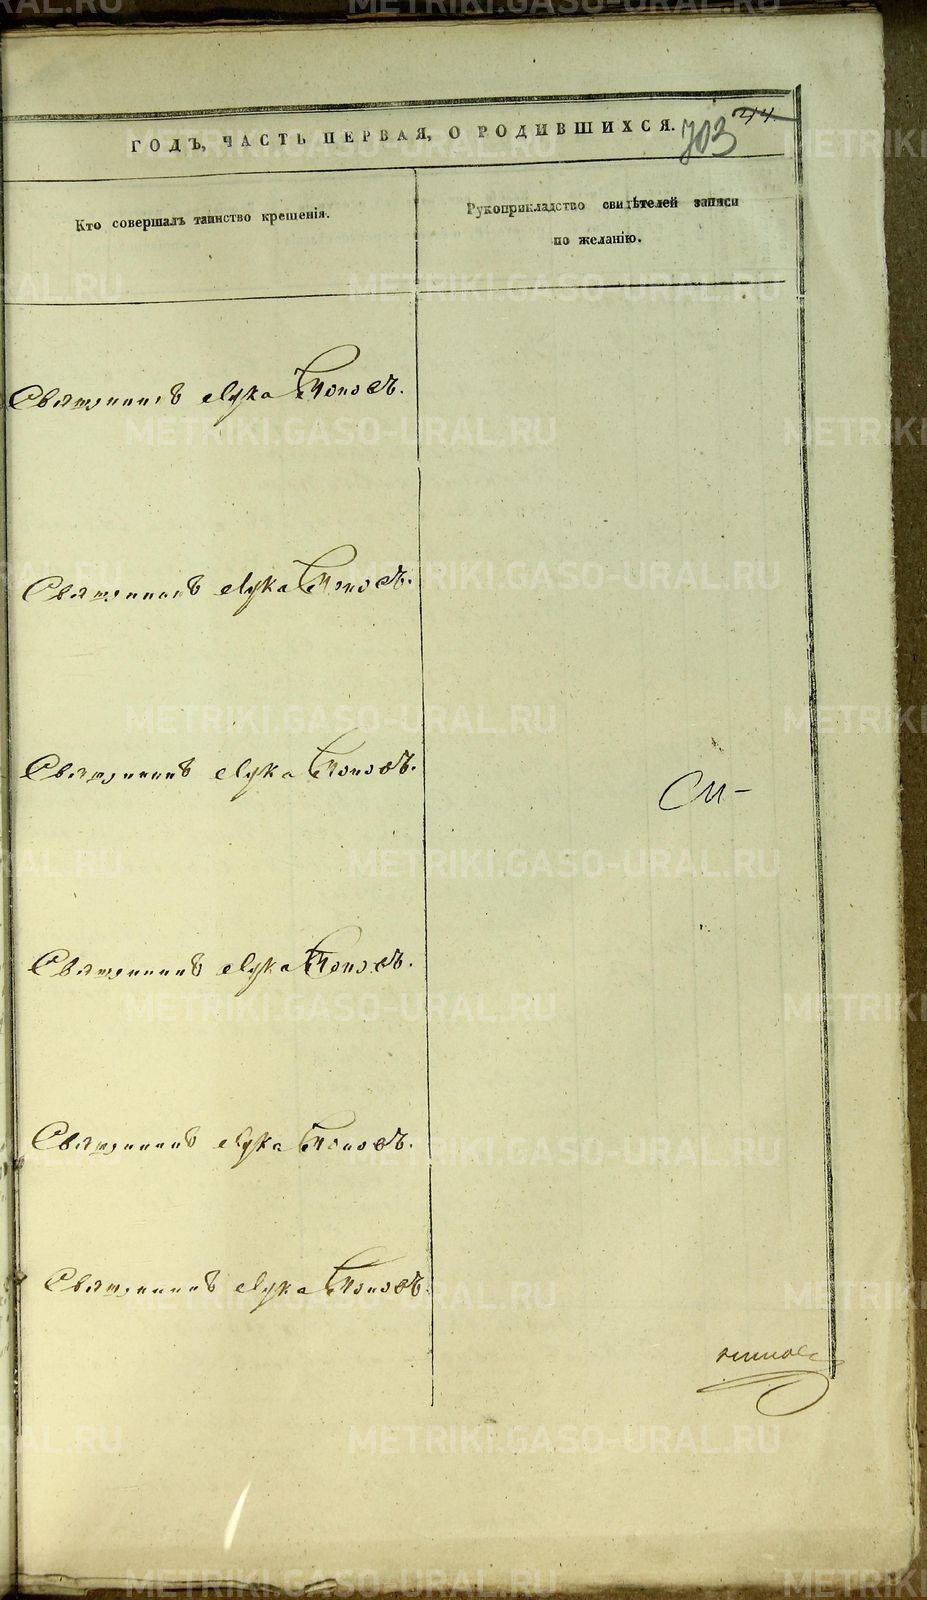 ГОДЪ, ЧАСТЬ ПЕРВАЯ, О РОДИВШИХСЯ.
703
Кто совершалъ таинство крещенія.
Рукоприкладство свидѣтелей записи
по желанію.
Священникъ Лука Поповъ.
Священникъ Лука Поповъ.
Священникъ Лука Поповъ.
Си-
Священникъ Лука Поповъ.
Священникъ Лука Поповъ.
Священникъ Лука Поповъ.
METRIKI.GASO-URAL.RU